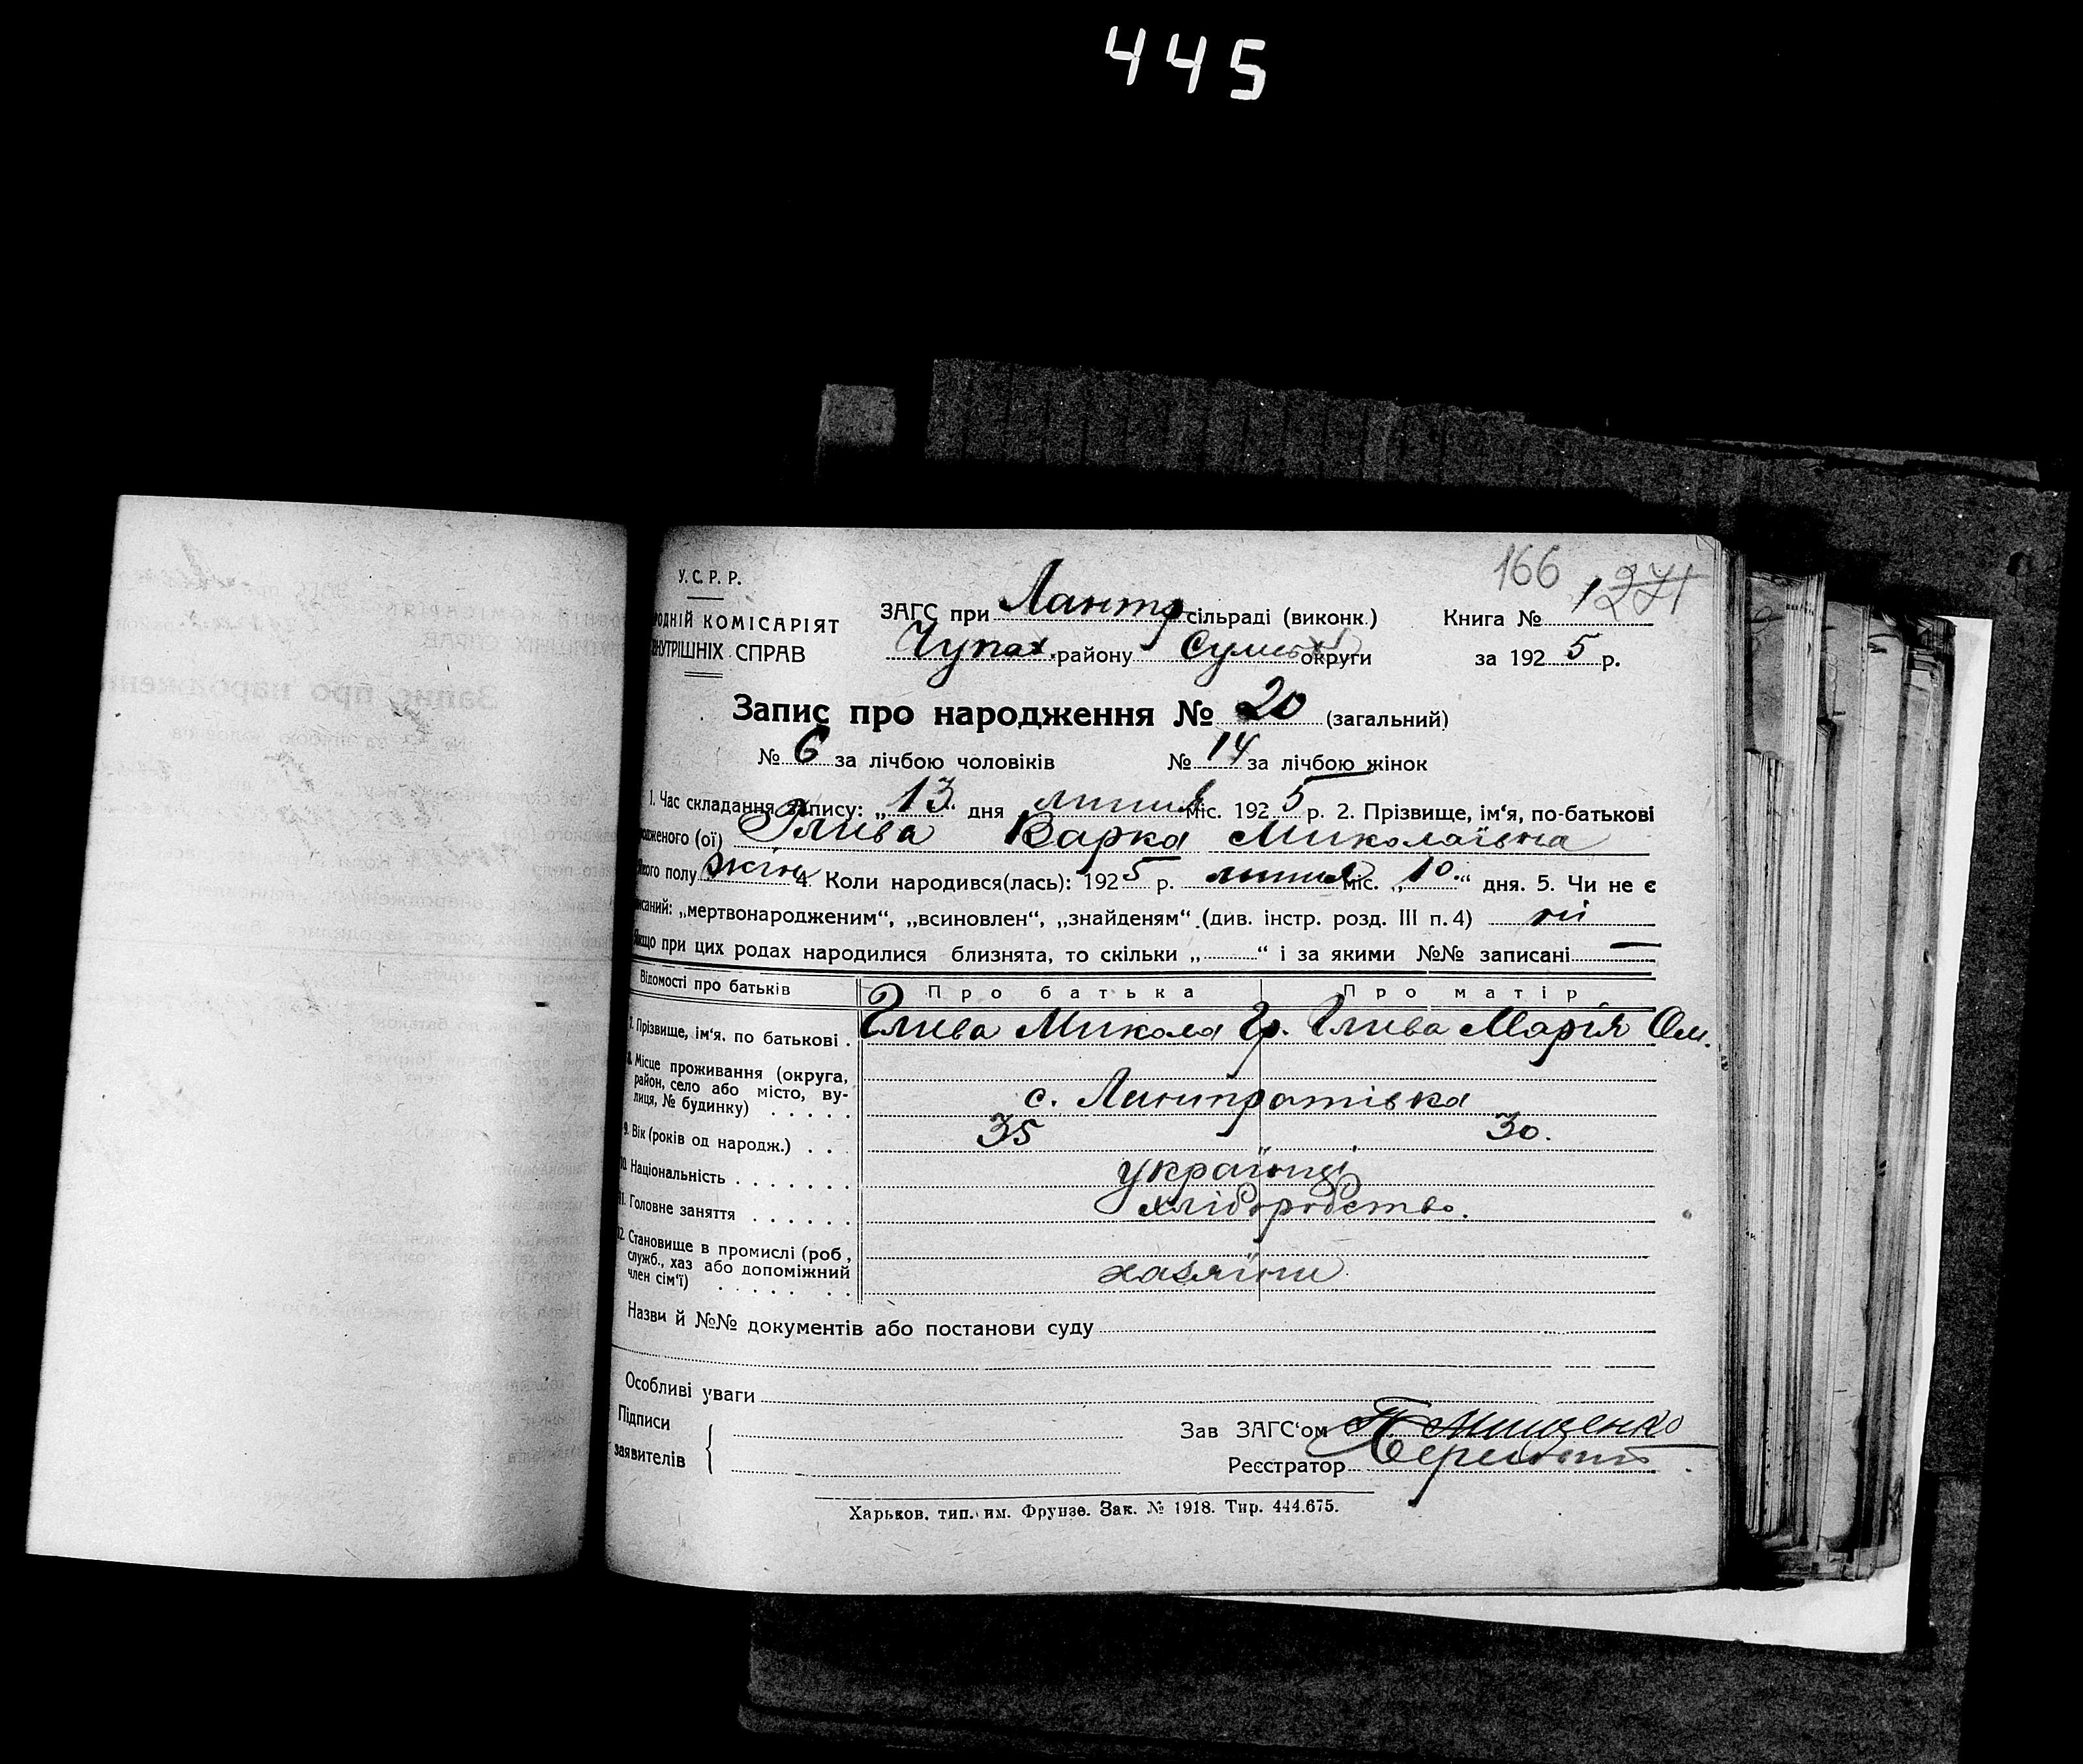 445
166 1271
У.С.Р.Р.
РОДНІЙ КОМІСАРІЯТ
НУТРІШНІХ СПРАВ
ЗАГС при Лантр сільраді (виконк.) Книга №
Чупах. району Сумськ округи за 1925 р.
Запис про народження № 20 (загальний)
№ 6 за лічбою чоловіків № 14 за лічбою жінок
1. Час складання запису: „13“ дня липня міс. 1925 р. 2. Прізвище, ім'я, по-батькові
родженого (ої) Глива Варка Миколаївна
якого полу жін 4. Коли народився(лась): 1925 р. липня міс. „10“ дня. 5. Чи не є
писаний: „мертвонародженим“, „всиновлен“, „знайденям“ (див. інстр. розд. III п. 4) ні
Якщо при цих родах народилися близнята, то скільки „ “ і за якими №№ записані —
Відомості про батьків Про батька Про матір
7. Прізвище, ім'я, по батькові . Глива Микола Гр. Глива Марія Ом.
8. Місце проживання (округа,
район, село або місто, ву-
лиця, № будинку) . . . . . с. Лантратівка
9. Вік (років од народж.) . . . 35 30.
10. Національність . . . . . . . українці
11. Головне заняття . . . . . . хліборобство.
12. Становище в промислі (роб.,
служб., хаз або допоміжний
член сім'ї) . . . . . . . хазяїни
Назви й №№ документів або постанови суду
Особливі уваги
Підписи
заявителів
Зав ЗАГС'ом П Мищенко
Реєстратор
Харьков, тип. им. Фрунзе. Зак. № 1918. Тир. 444.675.